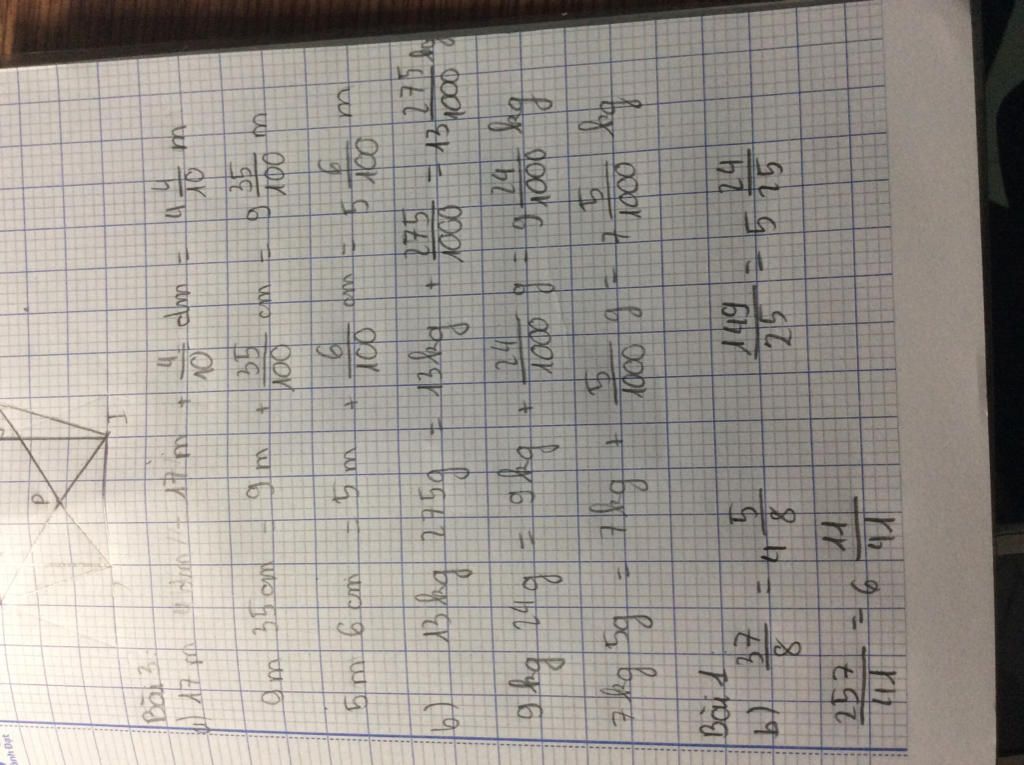 P
J
Bài 3.
a) 17 m 4 dm = 17 m + 4/10 dm = 4 4/10 m
9m 35 cm = 9 m + 35/100 cm = 9 35/100 m
5 m 6 cm = 5 m + 6/100 cm = 5 6/100 m
b) 13kg 275g = 13kg + 275/1000 = 13 275/1000 kg
9 kg 24g = 9kg + 24/1000 g = 9 24/1000 kg
7 kg 5g = 7kg + 5/1000 g = 7 5/1000 kg
Bài 1
b) 37/8 = 4 5/8 149/25 = 5 24/25
257/41 = 6 11/41